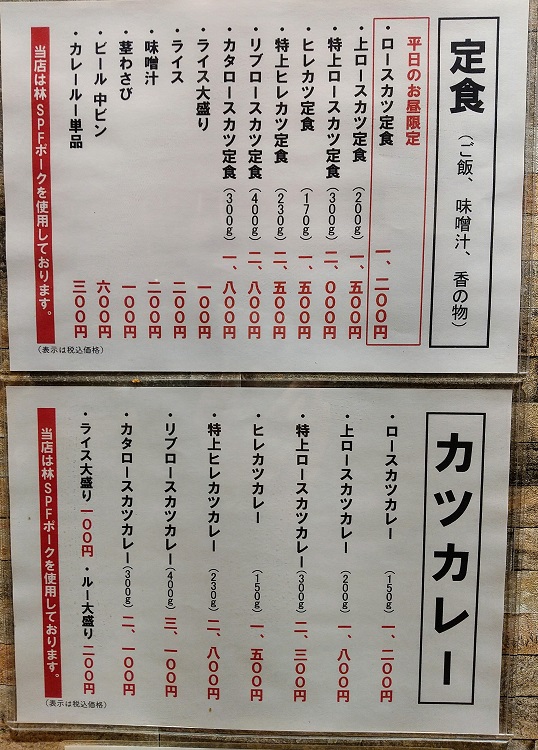 定食（ご飯、味噌汁、香の物）
平日のお昼限定
・ロースカツ定食 一、二〇〇円
・上ロースカツ定食（200g）一、五〇〇円
・特上ロースカツ定食（300g）二、〇〇〇円
・ヒレカツ定食（170g）一、五〇〇円
・特上ヒレカツ定食（230g）二、五〇〇円
・リブロースカツ定食（400g）二、八〇〇円
・カタロースカツ定食（300g）一、八〇〇円
・ライス大盛り 一〇〇円
・ライス 二〇〇円
・味噌汁 二〇〇円
・茎わさび 一〇〇円
・ビール 中ビン 六〇〇円
・カレールー単品 三〇〇円
当店は林SPFポークを使用しております。
（表示は税込価格）
カツカレー
・ロースカツカレー（150g）一、二〇〇円
・上ロースカツカレー（200g）一、八〇〇円
・特上ロースカツカレー（300g）二、三〇〇円
・ヒレカツカレー（150g）一、五〇〇円
・特上ヒレカツカレー（230g）二、八〇〇円
・リブロースカツカレー（400g）三、一〇〇円
・カタロースカツカレー（300g）二、一〇〇円
・ライス大盛り 一〇〇円 ・ルー大盛り 二〇〇円
当店は林SPFポークを使用しております。
（表示は税込価格）